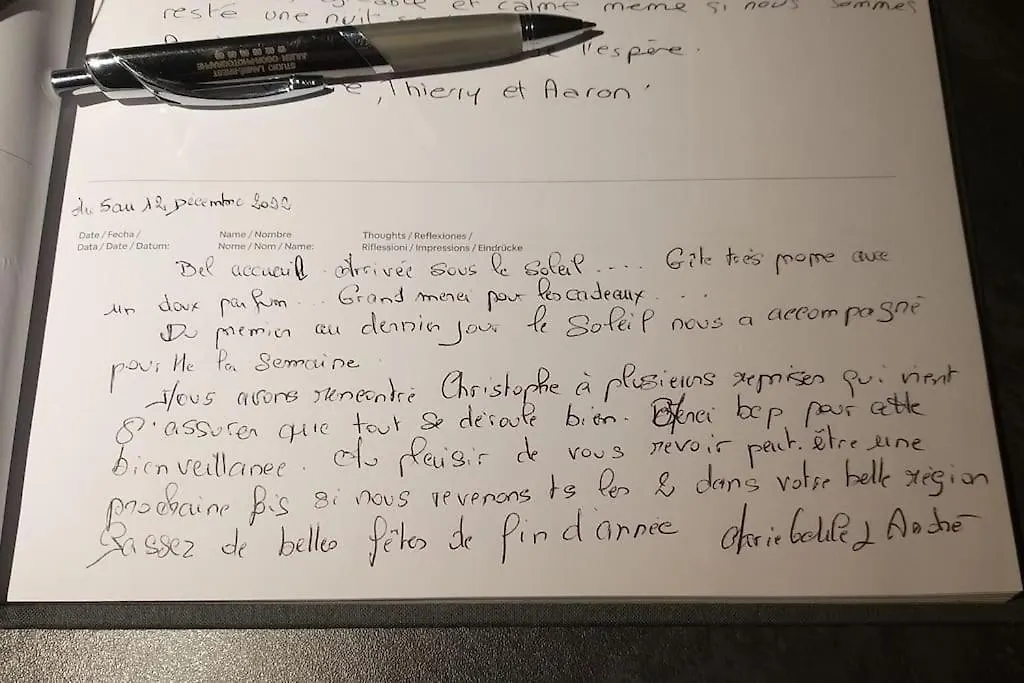 resté une nuit et calme même si nous sommes
l'espère.
, Thierry et Aaron.
STUDIO LABEL OUEST
JULIEN OGOR PHOTOGRAPHE
du 5 au 12 Décembre 2022
Date / Fecha / Name / Nombre Thoughts / Reflexiones /
Data / Date / Datum: Nome / Nom / Name: Riflessioni / Impressions / Eindrücke
Bel accueil. Arrivée sous le soleil .... Gîte très propre avec
un doux parfum... Grand merci pour les cadeaux...
Du premier au dernier jour le Soleil nous a accompagné
pour tte la Semaine.
Nous avons rencontré Christophe à plusieurs reprises qui vient
s'assurer que tout se déroule bien. Merci bcp pour cette
bienveillance. Au plaisir de vous revoir peut-être une
prochaine fois si nous revenons ts les 2 dans votre belle région
Passez de belles fêtes de fin d'année André